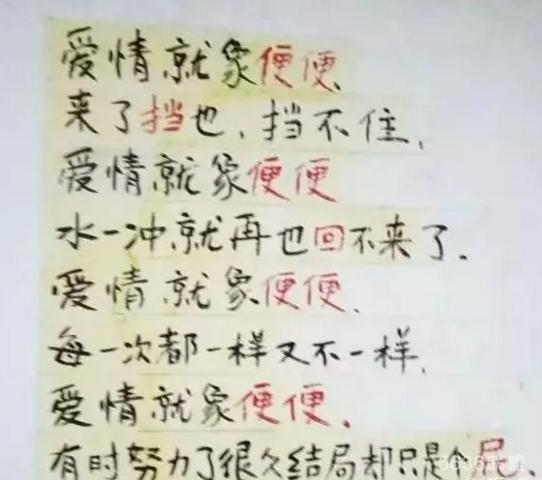 爱情就象便便、
来了挡也、挡不住、
爱情就象便便
水一冲就再也回不来了、
爱情就象便便、
每一次都一样又不一样、
爱情就象便便、
有时努力了很久结局却只是个屁、